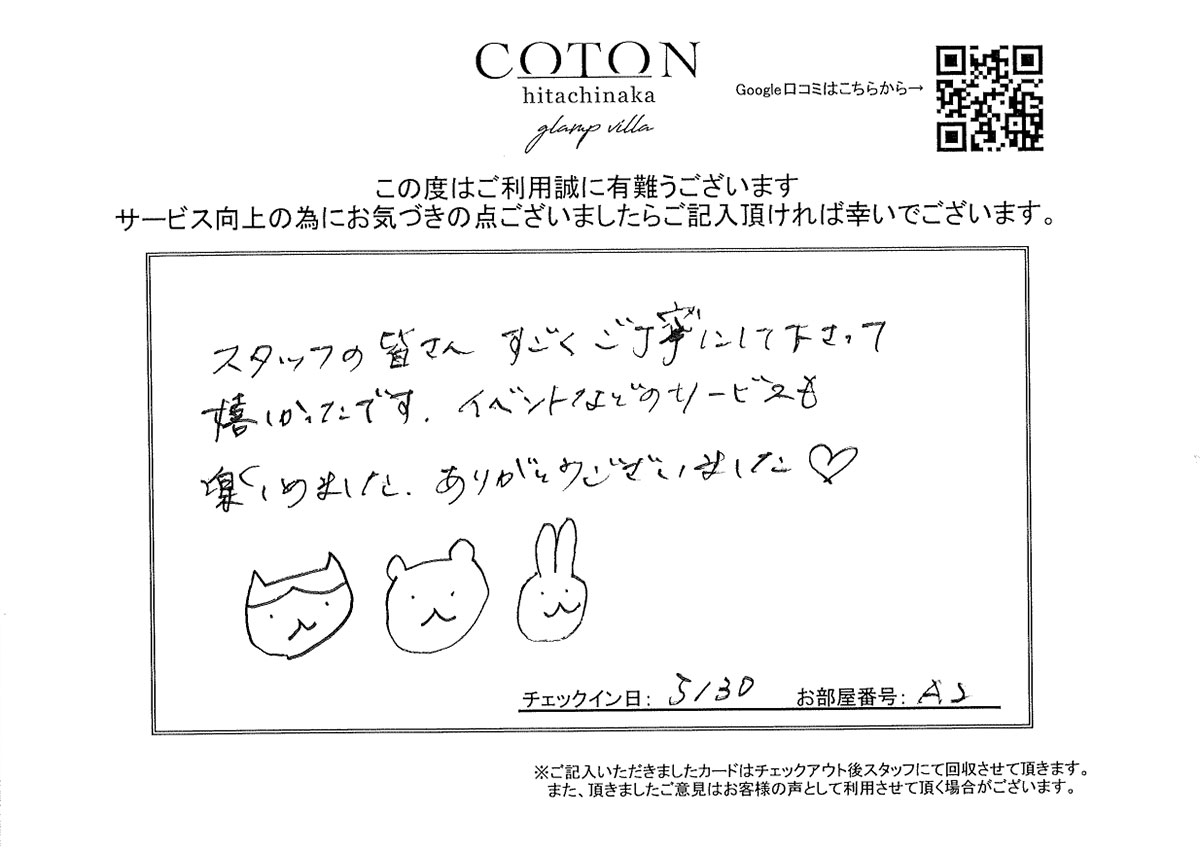 COTON
hitachinaka
glamp villa
Google口コミはこちらから→
この度はご利用誠に有難うございます
サービス向上の為にお気づきの点ございましたらご記入頂ければ幸いでございます。
スタッフの皆さん すごくご丁寧にして下さって
嬉しかったです. イベントなどのサービスも
楽しめました. ありがとうございました♡
チェックイン日: 5/30 お部屋番号: A
※ご記入いただきましたカードはチェックアウト後スタッフにて回収させて頂きます。
また、頂きましたご意見はお客様の声として利用させて頂く場合がございます。